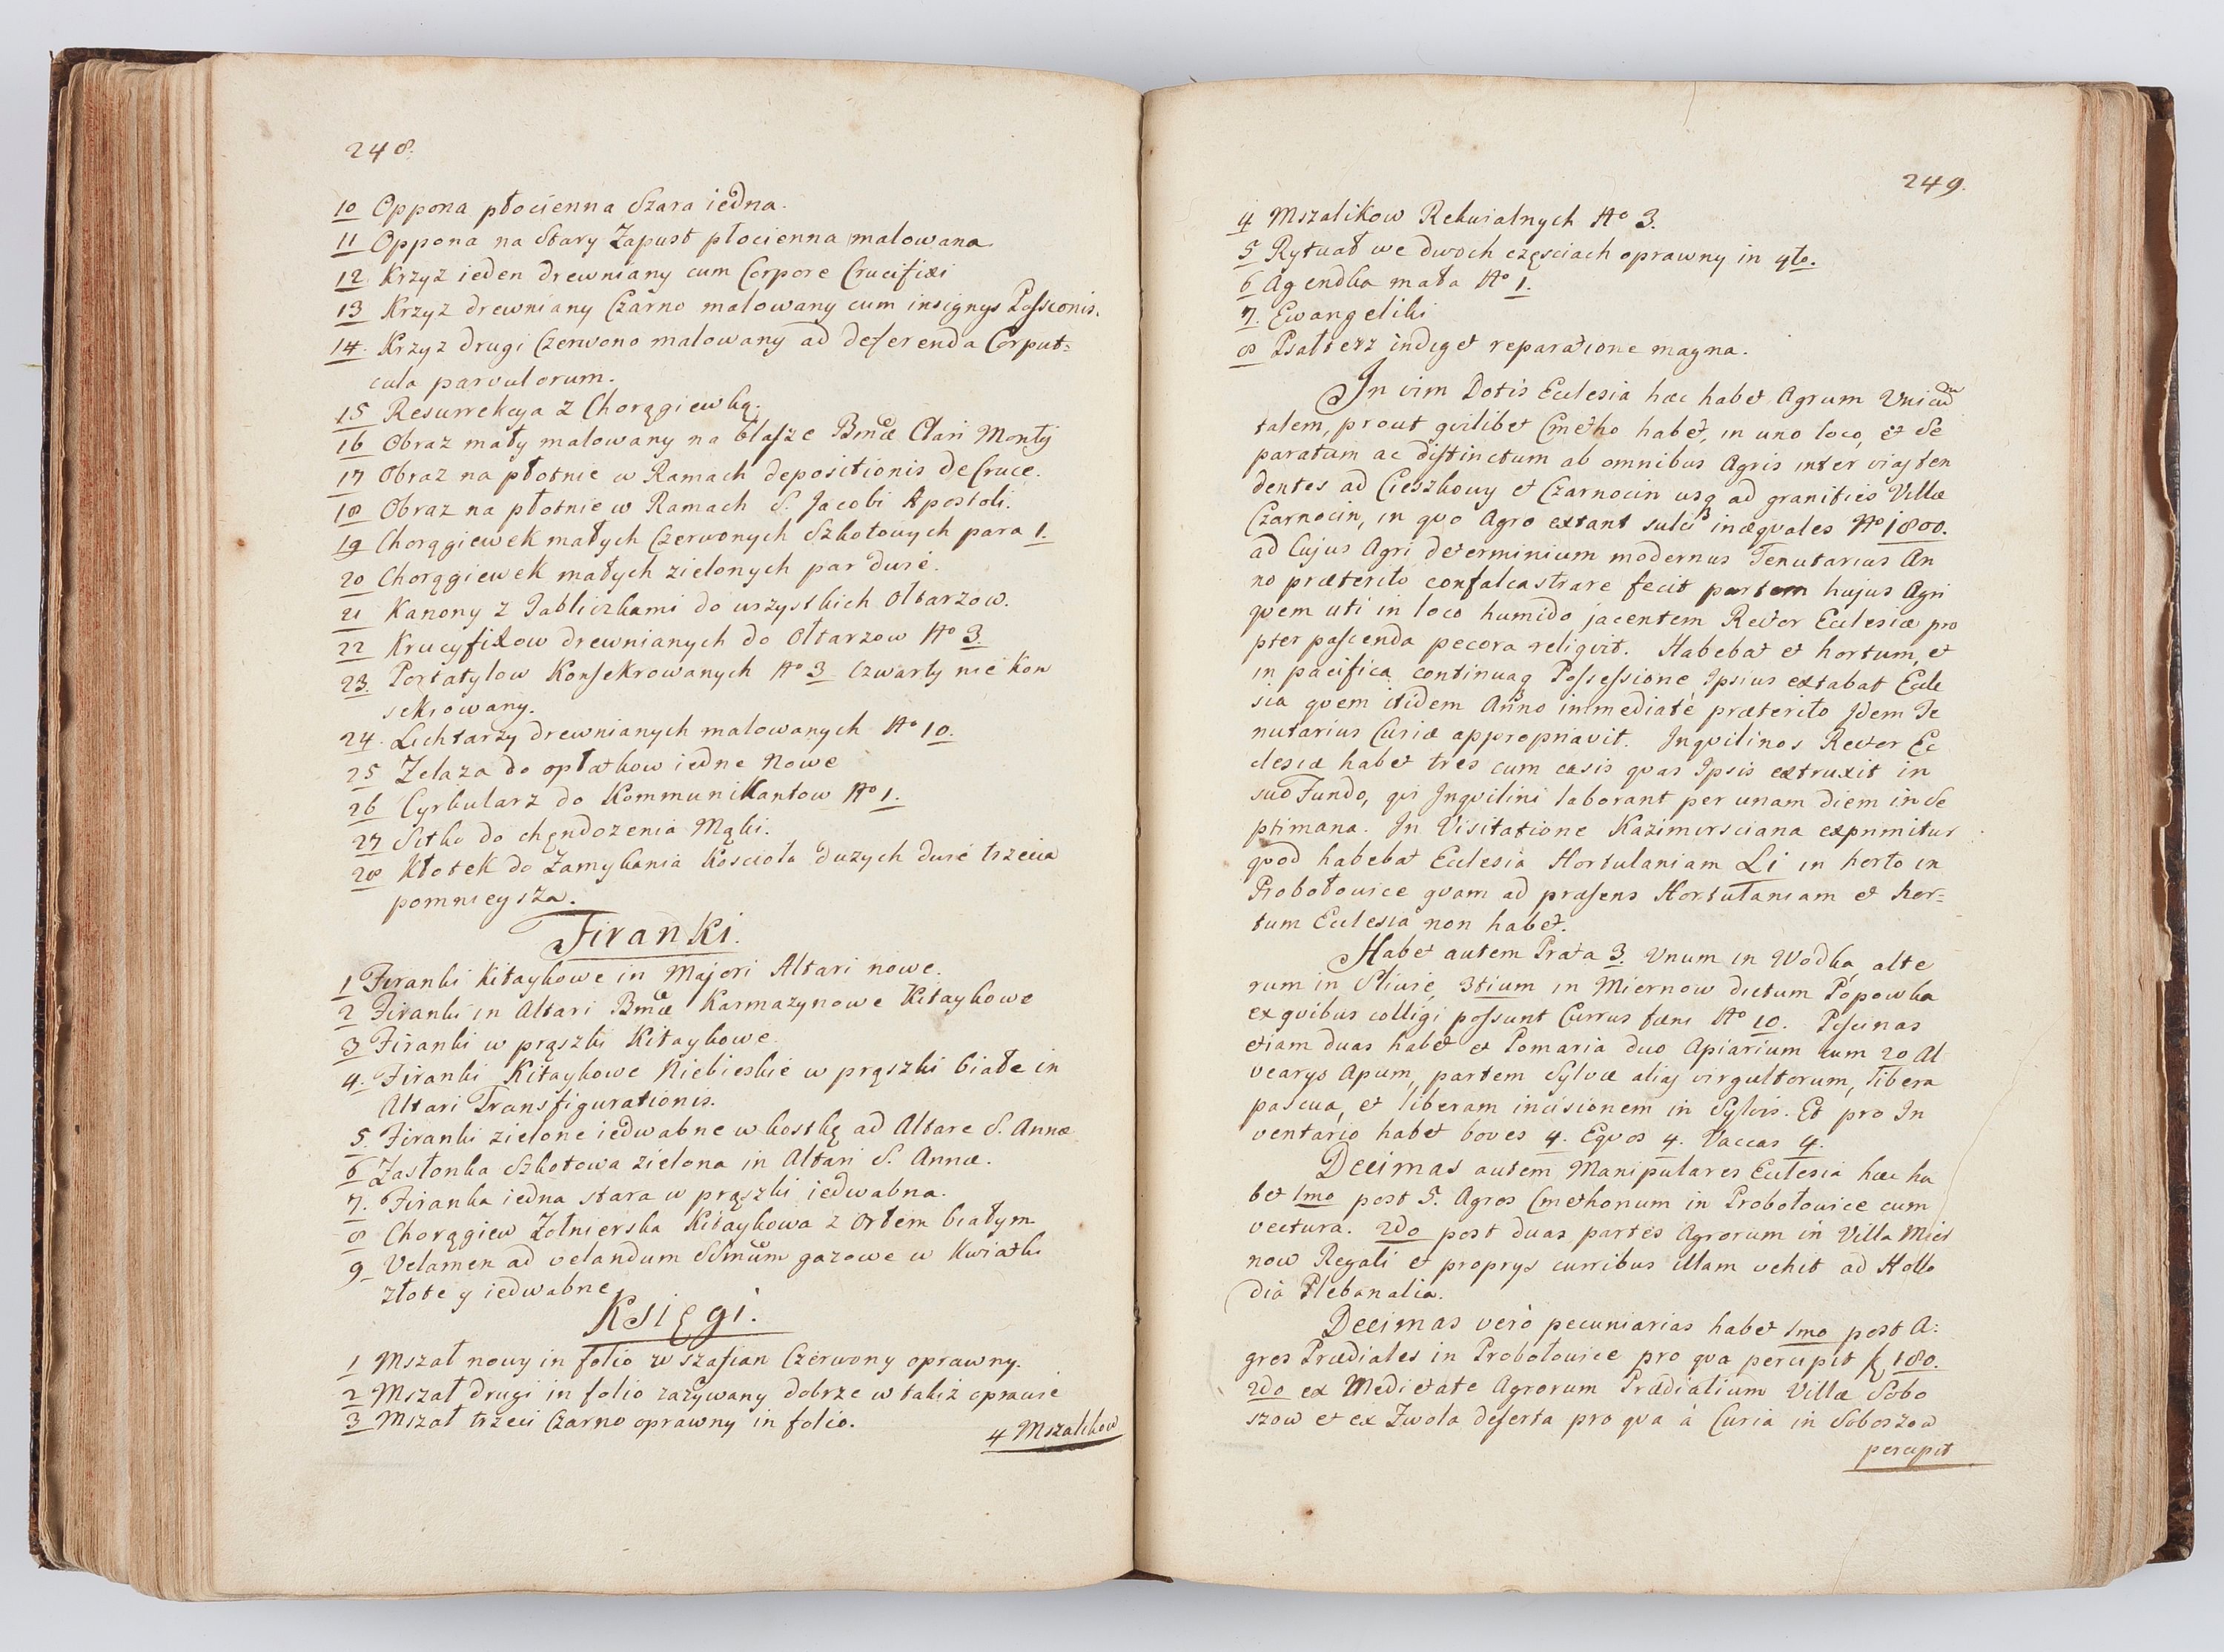 248.
10 Oppona płocienna Szara iedna.
11 Oppona na Stary Zapust płocienna malowana
12 Krzyz ieden drewniany cum Corpore Crucifixi
13 Krzyz drewniany Czarno malowany cum insignys Passionis.
14. Krzyz drugi Czerwono malowany ad deferenda Corpus=
cula parvulorum.
15 Resurrekcya z Chorągiewką.
16 Obraz mały malowany na blasze Bmæ Clari Monty
17 Obraz na płotnie w Ramach depositionis de Cruce.
18 Obraz na płotnie w Ramach S. Jacobi Apostoli.
19 Chorągiewek małych Czerwonych Szkotowych para 1.
20 Chorągiewek małych zielonych par dwie.
21 Kanony z Tabliczkami do wszystkich Ołtarzow.
22 Krucyfixow drewnianych do Ołtarzow No 3.
23. Portatylow Konsekrowanych No 3 Czwarty nie kon
sekrowany.
24. Lichtarzy drewnianych malowanych No 10.
25 Zelaza do opłatkow iedne Nowe
26 Cyrkularz do Kommunikantow No 1.
27 Sitko do chędozenia Mąki.
28 Kłotek do Zamykania Kosciola duzych dwie trzecia
pomnieysza.
Firanki.
1 Firanki kitaykowe in Majori Altari nowe.
2 Firanki in Altari Bmæ Karmazynowe Kitaykowe
3 Firanki w prąszki Kitaykowe
4. Firanki Kitaykowe Niebieskie w prąszki białe in
Altari Transfigurationis.
5 Firanki zielone iedwabne w kostkę ad Altare S. Annæ
6 Zasłonka Szkotowa zielona in Altari S. Annæ.
7. Firanka iedna stara w prąszki iedwabna.
8 Chorągiew Zołnierska Kitaykowa z Orłem białym
9 Velamen ad velandum SSmum gazowe w Kwiatki
złote y iedwabne
Księgi.
1 Mszał nowy in folio w szafian Czerwony oprawny.
2 Mszał drugi in folio zazywany dobrze w takiz oprawie
3 Mszał trzeci Czarno oprawny in folio.
4 Mszalikow
249.
4 Mszalikow Rekwialnych No 3.
5 Rytuał we dwoch częsciach oprawny in 4to.
6 Agendka mała No 1.
7. Ewangeliki
8 Psałterz indiget reparatione magna.
In vim Dotis Ecclesia hæc habet Agrum Unicum
talem, prout qvilibet Cmetho habet, in uno loco, et Se
paratum ac distinctum ab omnibus Agris inter vias ten
dentes ad Cieszkowy et Czarnocin usq ad granities Villæ
Czarnocin, in qvo Agro extant sulci inæqvales No 1800.
ad Cujus Agri determinium modernus Tenutarius An
no præterito confalcastrare fecit partem hujus Agri
qvem uti in loco humido jacentem Rector Ecclesiæ pro
pter pascenda pecora reliqvit. Habebat et hortum, et
in pacifica continuaq Possessione Ipsius extabat Eccle
sia qvem itidem Anno immediate præterito Idem Te
nutarius Curiæ appropriavit. Inqvilinos Rector Ec
clesiæ habet tres cum casis qvas Ipsis extruxit in
suo Fundo, qvi Inqvilini laborant per unam diem in Se
ptimana. In Visitatione Kazimirsciana exprimitur
qvod habebat Ecclesia Hortulaniam Li in horto in
Probołowice qvam ad præsens Hortulaniam et hor=
tum Ecclesia non habet.
Habet autem Prata 3. Unum in Wodka, alte
rum in Sliwie, 3tium in Miernow dictum Popowka
ex qvibus colligi possunt Currus fæni No 10. Piscinas
etiam duas habet et Pomaria duo Apiarium cum 20 Al
vearys Apum, partem Sylvæ alias virgultorum, libera
pascua, et liberam incisionem in Sylvis. Et pro In
ventario habet boves 4. Eqvos 4. Vaccas 4.
Decimas autem Manipulares Ecclesia hæc ha
bet 1mo post 5. Agros Cmethonum in Probołowice cum
vectura. 2do post duas partes Agrorum in Villa Mier
now Regali et proprys curribus illam vehit ad Hollo
dia Plebanalia.
Decimas vero pecuniarias habet 1mo post A:
gros Prædiales in Probołowice pro qva percipit f 180.
2do ex Medietate Agrorum Prædialium Villæ Sobo
szow et ex Zwola deserta pro qva à Curia in Soboszow
percipit